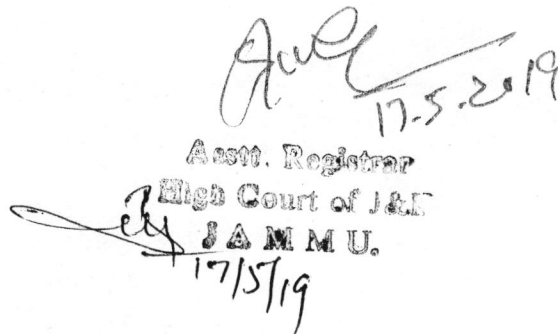 17.5.2019
Asstt. Registrar
High Court of J&K
JAMMU.
17/5/19